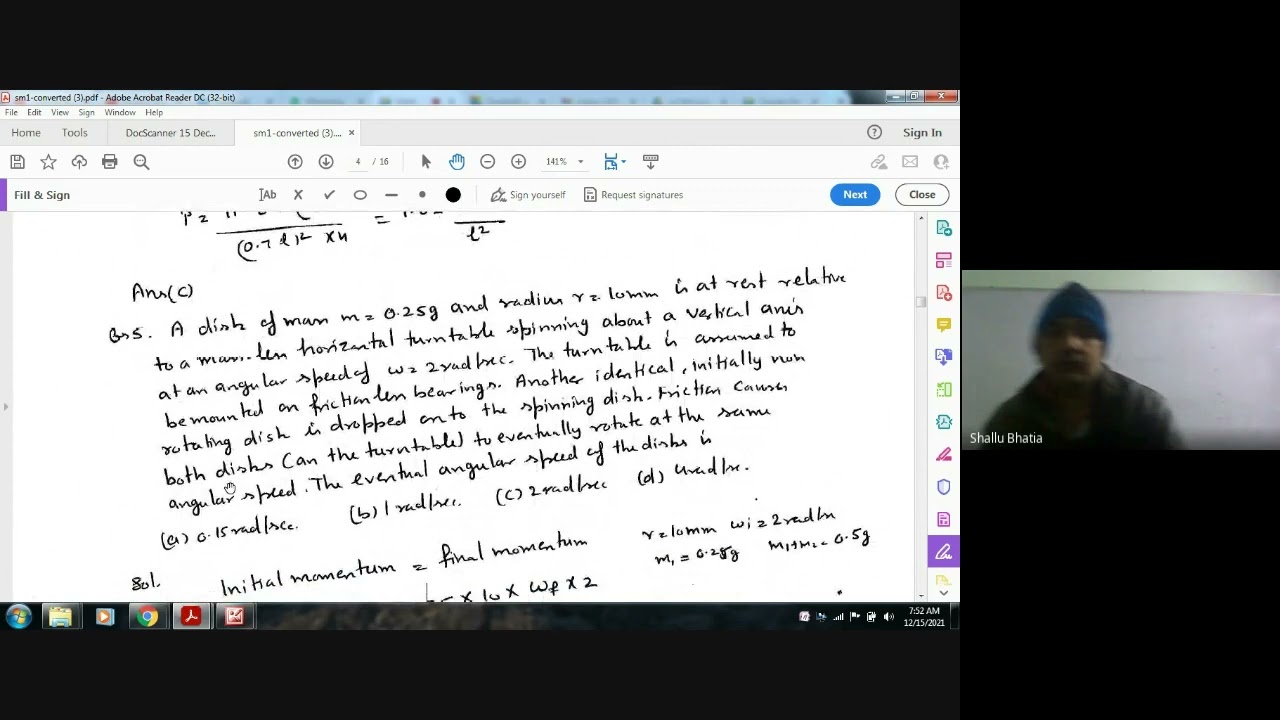 sm1-converted (3).pdf - Adobe Acrobat Reader DC (32-bit)
File Edit View Sign Window Help
Home Tools DocScanner 15 Dec... sm1-converted (3).... × Sign In
4 / 16 141%
Fill & Sign Ab Sign yourself Request signatures Next Close
(0.7 l)² x4 = l²
Ans(C)
Qs5. A disk of mass m = 0.25g and radius r = 10mm is at rest relative
to a mass-less horizontal turntable spinning about a vertical axis
at an angular speed of ω = 2 rad/sec. The turntable is assumed to
be mounted on frictionless bearings. Another identical, initially non
rotating disk is dropped onto the spinning disk. Friction causes
both disks (an the turntable) to eventually rotate at the same
angular speed. The eventual angular speed of the disks is
(a) 0.15 rad/sec. (b) 1 rad/sec. (c) 2 rad/sec (d) 4 rad/sec.
Sol. r = 10mm ωi = 2 rad/sec
Initial momentum = final momentum m₁ = 0.25g m₁+m₂ = 0.5g
x 10 x ωf x 2
Shallu Bhatia
7:52 AM
12/15/2021